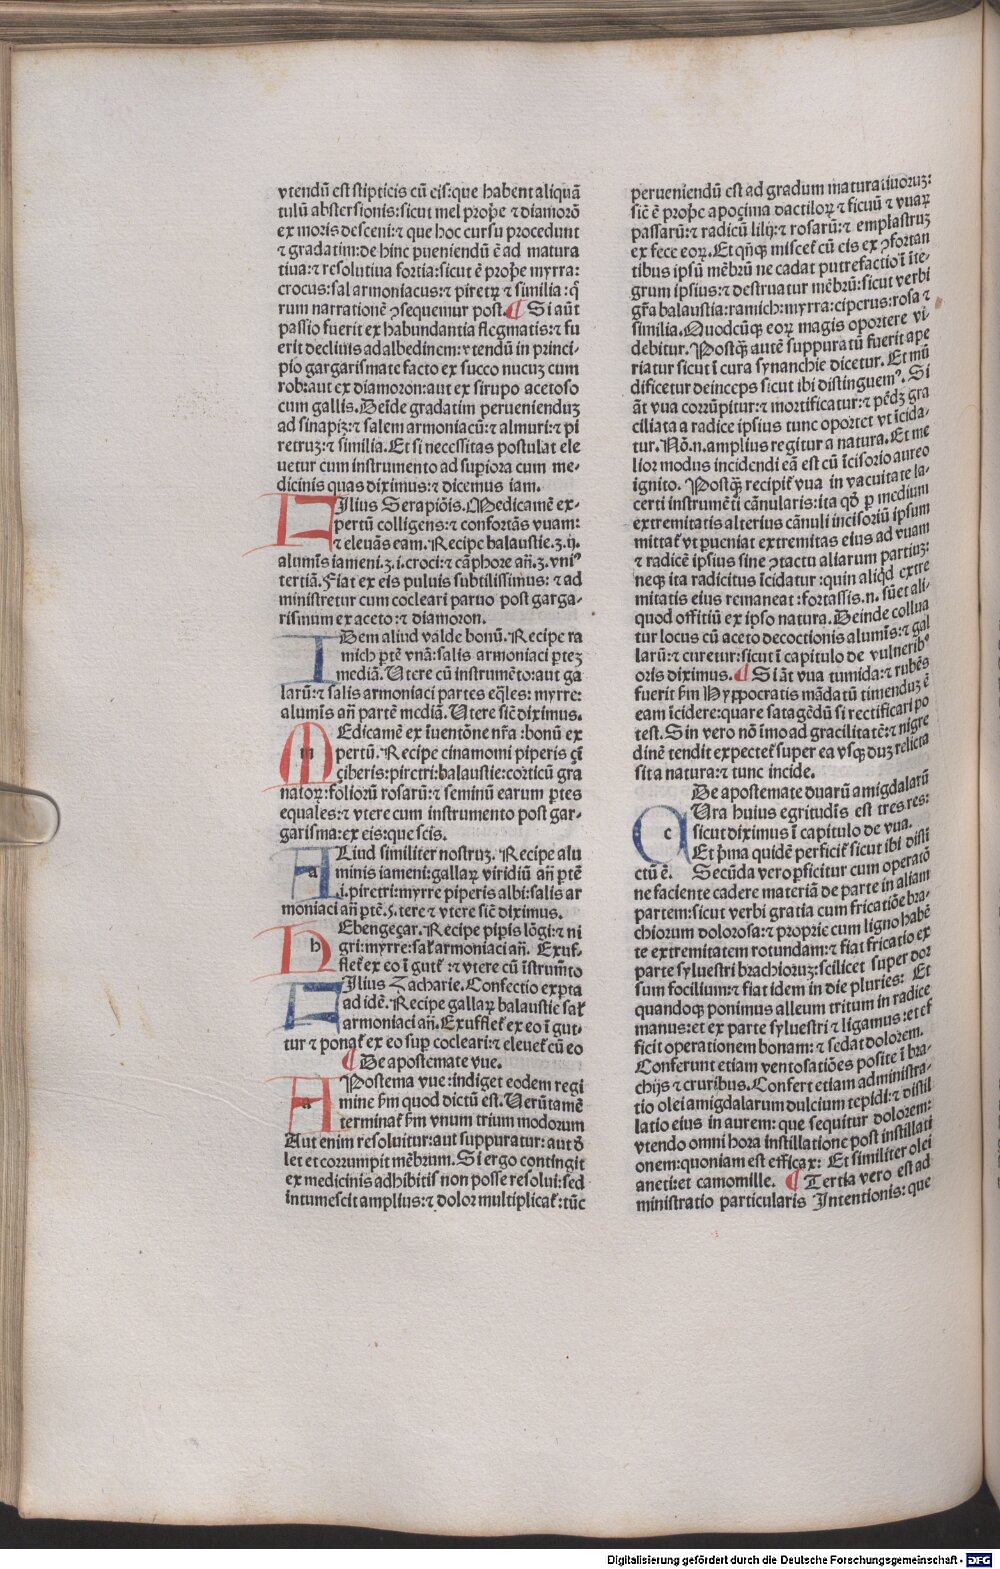 vtendū est stipticis cū eis: que habent aliquā
tulū abstersionis: sicut mel proṗe ⁊ diamorō
ex moris desceni: ⁊ que hoc cursu procedunt
⁊ gradatim: de hinc pueniendū ē ad matura
tiua: ⁊ resolutiua fortia: sicut ē proṗe myrra:
crocus: sal armoniacus: ⁊ piretꝝ ⁊ similia: q̄
rum narrationē ꝯsequemur post. ¶ Si aūt
passio fuerit ex habundantia flegmatis: ⁊ fu
erit decliuis ad albedinem: vtendū in princi-
pio gargarismate facto ex succo nucuʒ cum
rob: aut ex diamoron: aut ex sirupo acetoso
cum gallis. Deīde gradatim perueniendūʒ
ad sinapiʒ: ⁊ salem armoniacū: ⁊ almuri: ⁊ pi
retruʒ: ⁊ similia. Et si necessitas postulat ele
uetur cum instrumento ad supiora cum me-
dicinis quas diximus: ⁊ dicemus iam.
Filius Serapiōis. Medicamē ex-
pertū colligens: ⁊ confortās vuam:
⁊ eleuās eam. Recipe balaustie. ʒ. ij.
alumīs iameni. ʒ. i. croci: ⁊ cāphore añ. ʒ. vniꝰ
tertiā. Fiat ex eis puluis subtilissimus: ⁊ ad
ministretur cum cocleari paruo post garga-
rismum ex aceto: ⁊ diamoron.
IDem aliud valde bonū. Recipe ra
mich ꝑtē vnā: salis armoniaci ꝑteʒ
mediā. Utere cū instrumēto: aut ga
larū: ⁊ salis armoniaci partes eq̄les: myrre:
alumīs añ partē mediā. Utere siē diximus.
m
MEdicamē ex īuentōne nr̄a: bonū ex
pertū. Recipe cinamomi piperis çī
çiberis: piretri: balaustie: corticū gra
natoꝝ: folioꝛū rosarū: ⁊ seminū earum ꝑtes
equales: ⁊ vtere cum instrumento post gar-
garisma: ex eis: que scis.
a
ALiud similiter nostruʒ. Recipe alu
minis iameni: gallaꝝ viridiū añ ꝑtē
.i. piretri: myrre piperis albi: salis ar
moniaci añ ꝑtē. ʒ. tere ⁊ vtere siē diximus.
h
HEbengeçar. Recipe pipis lōgi: ⁊ ni
gri: myrre: saɫ armoniaci añ. Exuf-
fleť ex eo ī guť: ⁊ vtere cū īstrum̄to
FIlius Zacharie. Confectio expta
ad idē. Recipe gallaꝝ balaustie saɫ
armoniaci añ. Exuffleť ex eo ī gut-
tur ⁊ ponať ex eo sup cocleari: ⁊ eleueť cū eo
¶ De apostemate vue.
a
APostema vue: indiget eodem regi
mine ẜm quod dictū est. Uerūtamē
terminať ẜm vnum trium modorum
Aut enim resoluitur: aut suppuratur: aut d̄
let et corrumpit mēbrum. Si ergo contingit
ex medicinis adhibitis non posse resolui: sed
intumescit amplius: ⁊ dolor multiplicať: tūc
perueniendū est ad gradum maturatiuoruʒ:
siē ē proṗe apoçima dactiloꝝ ⁊ ficuū ⁊ vuaꝝ
passarū: ⁊ radicū lilij: ⁊ rosarū: ⁊ emplastruʒ
ex fece eoꝝ. Et qñꝙ misceť cū eis ex ꝯfortan
tibus ipsū mēbrū ne cadat putrefactio ī īte-
grum ipsius: ⁊ destruatur mēbrū: sicut verbi
gr̄a balaustia: ramich: myrra: ciperus: rosa ⁊
similia. Quodcūꝙ eoꝝ magis oportere vi
debitur. Postꝙ̄ autē suppuratū fuerit ape
riatur sicut ī cura synanchie dicetur. Et mū
dificetur deinceps sicut ibi distinguemꝰ. Si
āt vua corrūpitur: ⁊ mortificatur: ⁊ pēdʒ gra
ciliata a radice ipsius tunc oportet vt īcida-
tur. Nō. n. amplius regitur a natura. Et me
lior modus incidendi eā est cū īcisorio aureo
ignito. Postꝙ̄ recipiť vua in vacuitate la-
certi instrumēti cānularis: ita qđ ꝑ medium
extremitatis alterius cānuli incisoriū ipsum
mittať vt pueniat extremitas eius ad vuam
⁊ radicē ipsius sine ꝯtactu aliarum partiuʒ:
neqꝫ ita radicitus īcidatur: quin aliqđ extre
mitatis eius remaneat: fortassis. n. sūet ali-
quod offitiū ex ipso natura. Deinde collua
tur locus cū aceto decoctionis alumīs: ⁊ gal
larū: ⁊ curetur: sicut ī capitulo de vulneribꝰ
oris diximus. ¶ Si āt vua tumida: ⁊ rubēs
fuerit ẜm Hyppocratis mādatū timenduʒ ē
eam īcidere: quare satagēdū si rectificari po
test. Sin vero nō īmo ad gracilitatē: ⁊ nigre
dinē tendit expecteť super ea vsqꝫ duʒ relicta
sit a natura: ⁊ tunc incide.
De apostemate duarū amigdalarū
c
CUra huius egritudīs est tres res:
sicut diximus ī capitulo de vua.
Et ṗma quidē perficiť sicut ibi distī
ctū ē. Secūda vero ꝑficitur cum operatō
ne faciente cadere materiā de parte in aliam
partem: sicut verbi gratia cum fricatiōe bra-
chiorum dolorosa: ⁊ proprie cum ligno habē
te extremitatem rotundam: ⁊ fiat fricatio ex
parte syluestri brachioruʒ: scilicet super dor
sum focilium: ⁊ fiat idem in die pluries: Et
quandoqꝫ ponimus alleum tritum in radice
manus: et ex parte syluestri ⁊ ligamus: et ef
ficit operationem bonam: ⁊ sedat dolorem.
Conferunt etiam ventosatiōes posite ī bra-
chijs ⁊ cruribus. Confert etiam administra-
tio olei amigdalarum dulcium tepidi: ⁊ distil
latio eius in aurem: que sequitur dolorem:
vtendo omni hora instillatione post instillati
onem: quoniam est efficax: Et similiter olei
aneti: et camomille. ¶ Tertia vero est ad
ministratio particularis Intentionis: que
Digitalisierung gefördert durch die Deutsche Forschungsgemeinschaft - DFG